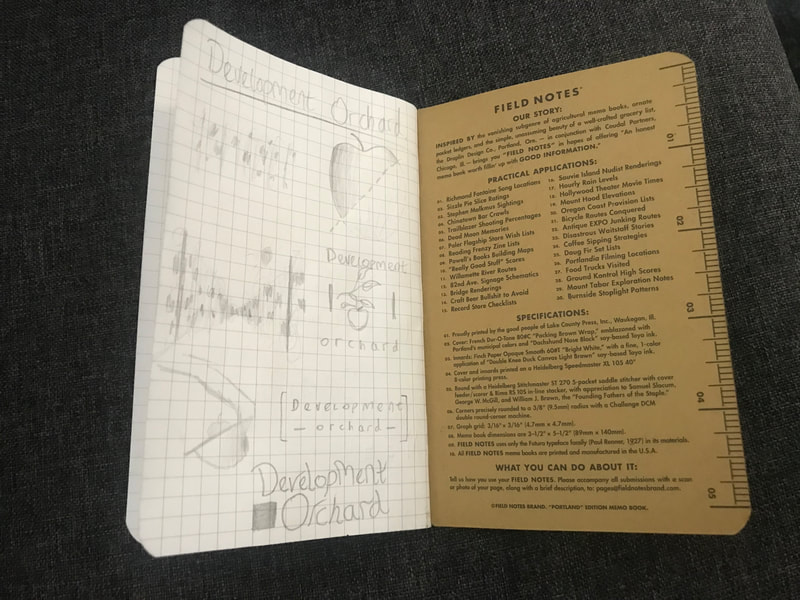 Development Orchard
Development
orchard
[Development]
– orchard –
Development
Orchard
FIELD NOTES®
OUR STORY:
INSPIRED BY the vanishing subgenre of agricultural memo books, ornate
pocket ledgers, and the simple, unassuming beauty of a well-crafted grocery list,
the Draplin Design Co., Portland, Ore. – in conjunction with Coudal Partners,
Chicago, Ill. – brings you "FIELD NOTES" in hopes of offering "An honest
memo book worth fillin' up with GOOD INFORMATION."
PRACTICAL APPLICATIONS:
01. Richmond Fontaine Song Locations
02. Sizzle Pie Slice Ratings
03. Stephen Malkmus Sightings
04. Chinatown Bar Crawls
05. Trailblazer Shooting Percentages
06. Dead Moon Memories
07. Poler Flagship Store Wish Lists
08. Reading Frenzy Zine Lists
09. Powell's Books Building Maps
10. "Really Good Stuff" Scores
11. Willamette River Routes
12. 82nd Ave. Signage Schematics
13. Bridge Renderings
14. Craft Beer Bullshit to Avoid
15. Record Store Checklists
16. Sauvie Island Nudist Renderings
17. Hourly Rain Levels
18. Hollywood Theater Movie Times
19. Mount Hood Elevations
20. Oregon Coast Provision Lists
21. Bicycle Routes Conquered
22. Antique EXPO Junking Routes
23. Disastrous Waitstaff Stories
24. Coffee Sipping Strategies
25. Doug Fir Set Lists
26. Portlandia Filming Locations
27. Food Trucks Visited
28. Ground Kontrol High Scores
29. Mount Tabor Exploration Notes
30. Burnside Stoplight Patterns
SPECIFICATIONS:
01. Proudly printed by the good people of Lake County Press, Inc., Waukegan, Ill.
02. Cover: French Dur-O-Tone 80#C "Packing Brown Wrap," emblazoned with
Portland's municipal colors and "Dachshund Nose Black" soy-based Toyo ink.
03. Innards: Finch Paper Opaque Smooth 60#T "Bright White," with a fine, 1-color
application of "Double Knee Duck Canvas Light Brown" soy-based Toyo ink.
04. Cover and innards printed on a Heidelberg Speedmaster XL 105 40"
8-color printing press.
05. Bound with a Heidelberg Stitchmaster ST 270 5-pocket saddle stitcher with cover
feeder/scorer & Rima RS 10S in-line stacker, with appreciation to Samuel Slocum,
George W. McGill, and William J. Brown, the "Founding Fathers of the Staple."
06. Corners precisely rounded to a 3/8" (9.5mm) radius with a Challenge DCM
double round-corner machine.
07. Graph grid: 3/16" x 3/16" (4.7mm x 4.7mm).
08. Memo book dimensions are 3-1/2" x 5-1/2" (89mm x 140mm).
09. FIELD NOTES uses only the Futura typeface family (Paul Renner, 1927) in its materials.
10. All FIELD NOTES memo books are printed and manufactured in the U.S.A.
WHAT YOU CAN DO ABOUT IT:
Tell us how you use your FIELD NOTES. Please accompany all submissions with a scan
or photo of your page, along with a brief description, to: pages@fieldnotesbrand.com.
©FIELD NOTES BRAND. "PORTLAND" EDITION MEMO BOOK.
01
02
03
04
05